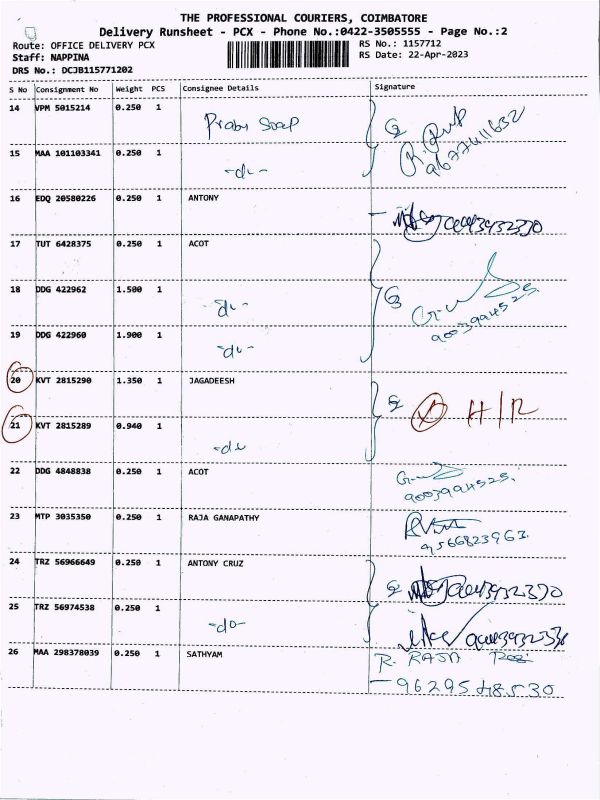 THE PROFESSIONAL COURIERS, COIMBATORE
Delivery Runsheet - PCX - Phone No.:0422-3505555 - Page No.:2
Route: OFFICE DELIVERY PCX RS No.: 1157712
Staff: NAPPINA RS Date: 22-Apr-2023
DRS No.: DCJB115771202
S No Consignment No Weight PCS Consignee Details Signature
14 VPM 5015214 0.250 1 Prabu Soap
15 MAA 101103341 0.250 1 -do-
16 EDQ 20580226 0.250 1 ANTONY
17 TUT 6428375 0.250 1 ACOT
18 DDG 422962 1.500 1 -do-
9003994525
19 DDG 422960 1.900 1 -do-
20 KVT 2815290 1.350 1 JAGADEESH
H/R
21 KVT 2815289 0.940 1 -do-
22 DDG 4848838 0.250 1 ACOT
9003994525.
23 MTP 3035350 0.250 1 RAJA GANAPATHY
9566823963.
24 TRZ 56966649 0.250 1 ANTONY CRUZ
25 TRZ 56974538 0.250 1 -do-
26 MAA 298378039 0.250 1 SATHYAM R. RAJA
- 9629548530